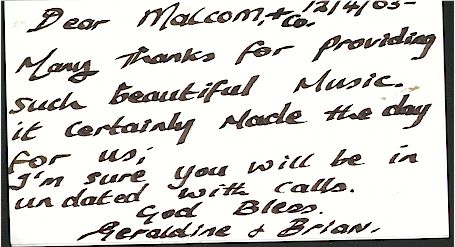 Dear Malcom, & Co. 12/4/05-
Many thanks for providing
such beautiful Music.
it certainly Made the day
for us;
I'm sure you will be in
undated with calls.
God Bless.
Geraldine & Brian.